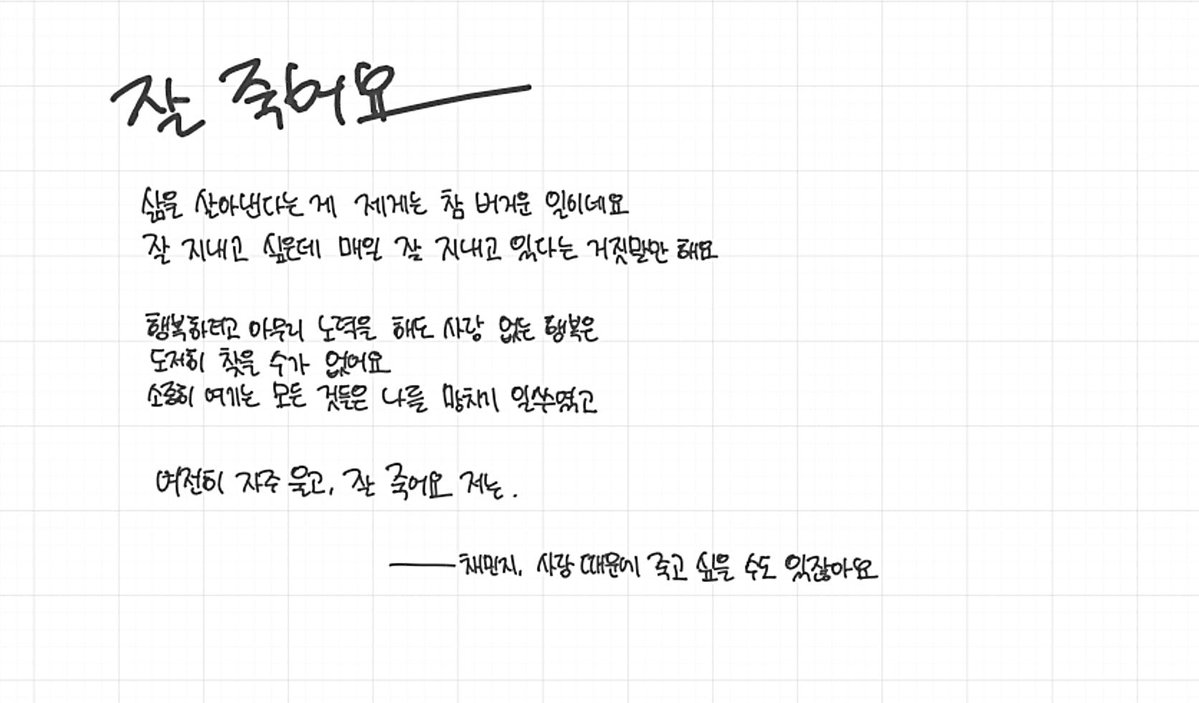 잘 죽어요
삶을 살아낸다는 게 제게는 참 버거운 일이네요
잘 지내고 싶은데 매일 잘 지내고 있다는 거짓말만 해요
행복하려고 아무리 노력을 해도 사랑 없는 행복은
도저히 찾을 수가 없어요
소중히 여기는 모든 것들은 나를 망치기 일쑤였고
여전히 자주 울고, 잘 죽어요 저는.
——채민지, 사랑 때문에 죽고 싶을 수도 있잖아요